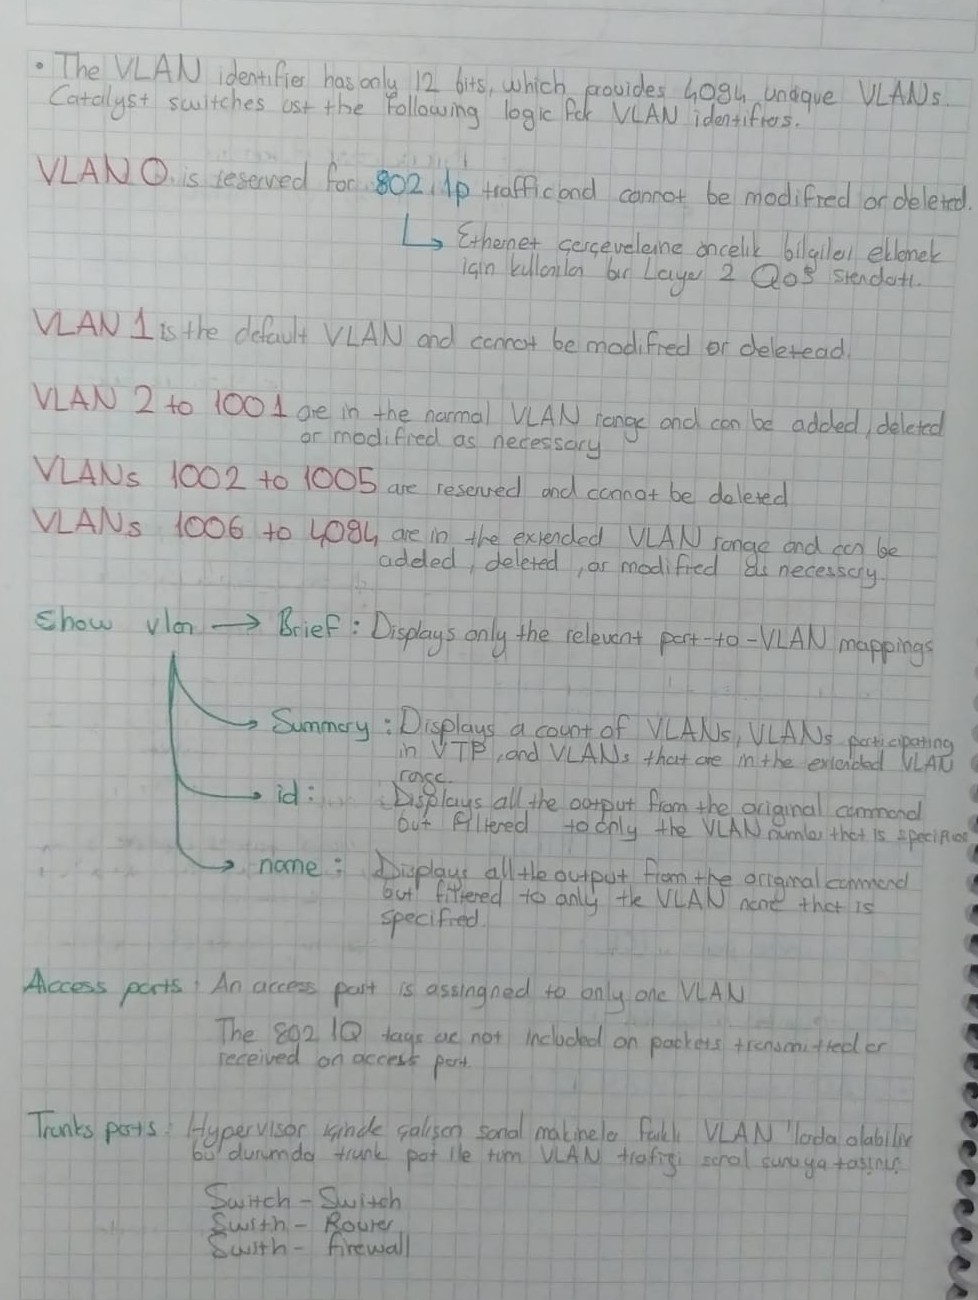 • The VLAN identifier has only 12 bits, which provides 4094 unique VLANs.
Catalyst switches ust the following logic for VLAN identifirs.
VLAN 0 is reserved for 802.1p traffic and cannot be modifred or deleted.
Ethernet çerçevelerine öncelik bilgileri eklemek
için kullanılan bir Layer 2 QoS standartı.
VLAN 1 is the default VLAN and cannot be modified or deletead.
VLAN 2 to 1001 are in the normal VLAN range and can be added, deleted
or modifired as necessary
VLANs 1002 to 1005 are reserved and cannot be deleted
VLANs 1006 to 4094 are in the extended VLAN range and can be
added, deleted, or modifred as necessary.
Show vlan → Brief : Displays only the relevant port-to-VLAN mappings
Summary : Displays a count of VLANs, VLANs participating
in VTP, and VLANs that are in the extended VLAN
range.
id : Displays all the output from the original command
but filtered to only the VLAN number that is specified
name : Displays all the output from the original command
but filtered to only the VLAN name that is
specifred.
Access ports : An access port is assingned to only one VLAN
The 802.1Q tags are not included on packets transmitted or
received on access port.
Trunks ports : Hypervisor içinde çalışan sanal makineler farklı VLAN 'larda olabilir
bu durumda trunk port ile tüm VLAN trafiği sanal sunucuya taşınır.
Switch - Switch
Swith - Router
Swith - firewall